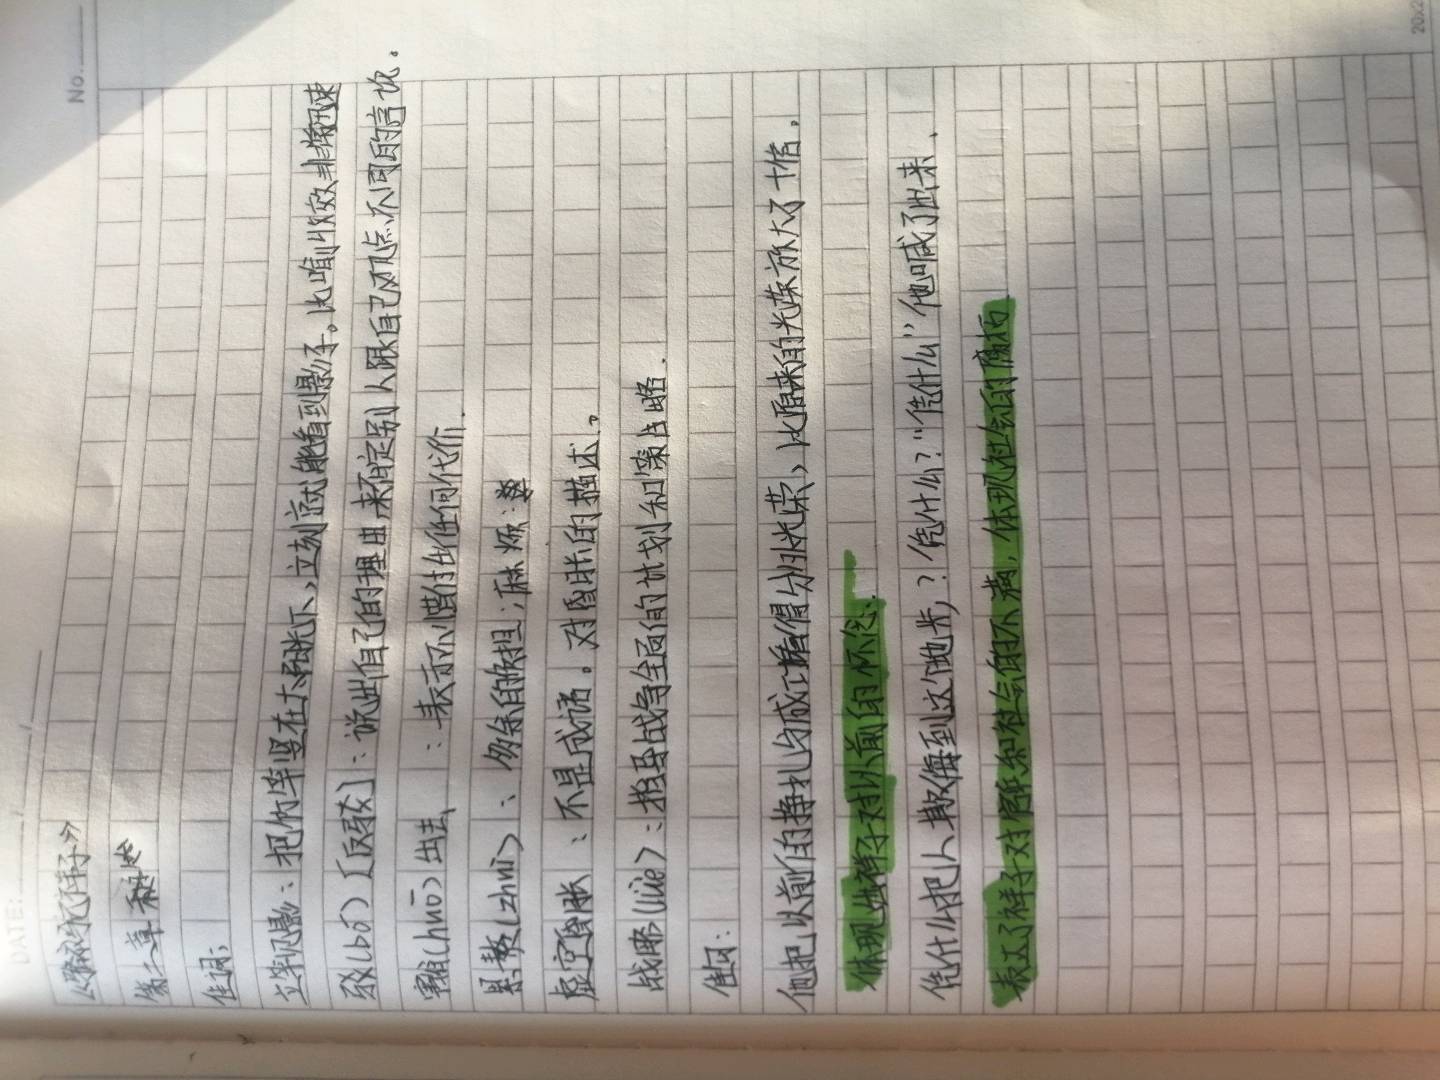 No.
DATE:
《骆驼祥子》
第二章
佳词:
立竿见影:把竹竿竖在太阳光下,立刻就能看到影子。比喻收效非常迅速
驳(bó)[反驳]:说出自己的理由来否定别人跟自己观点不同的言论。
豁(huō)出去:表示不惜付出任何代价.
累赘(zhui):多余的负担;麻烦:
虚空 :不是成语。对 的描述。
战略(lüè):指导战争全局的计划和策占略.
佳句:
他把以前的挣扎与成 得分外光荣,比原来的光荣放大了十倍。
体现 祥子对以前的怀念.
凭什么把人欺侮到这个地步,?凭什么?“凭什么”他喊了出来.
表达了祥子对 和社会的不满,体现社会的腐朽
20x2